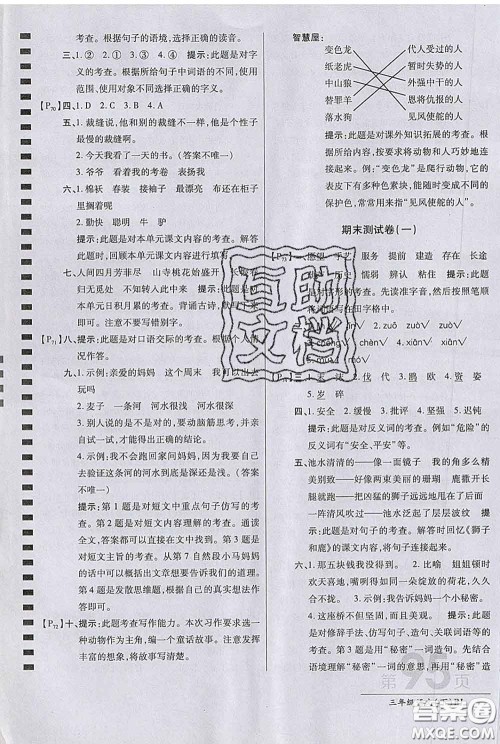 考查。根据句子的意思选择正确的读音。
三、1.① ②  2.①  3.④  4.④  提示:此题是对字
义的考查。根据所给句子中词语的不同,使用
范围、使用对象不同选择正确的字义。
【P70】四、1. D  2. C  3. B  4. A
五、1. 裁缝说,他和别的裁缝不一样,他是个性子
最慢的裁缝啊。
2. 今天我看了一天的书。(答案不唯一)
3. 爸爸看了我的考卷  表扬我
六、1. 棉袄  春装  接袖子  最漂亮  布店柜子
里搁着呢
2. 勤快  聪明  牛  驴
提示:此题是对本单元课文内容的考查。解答
此题时,要熟悉课文内容。
七、人间四月芳菲尽  山寺桃花始盛开  长恨春归
无觅处  不知转入此中来  提示:此题是对
本单元日积月累的考查。背诵古诗,默写古诗
即可。注意不要写错别字。
【P71】八、提示:此题是对口语交际的考查。根据个人
情况作答。
九、1. 示例:亲爱的妈妈  这个周末  我能出去
玩吗
2. 麦子  一条河  河水很浅
河水很深
3. 别人说的不一定是对的,要动脑筋思考,并
亲自试一试,才能知道结果。
4. 示例:我不会跑回家问妈妈,因为我要自己
去验证这条河的河水到底是深还是浅。(答案
不唯一)
提示:第 1 题是对短文中重点句子仿写的考
查。第 2 题是对短文内容理解的考查。通读
全文,根据短文内容填空即可。第 3 题是对短
文主旨的考查。从第 7 自然段小马妈妈的话
中就可以概括出文章想要告诉我们的道理。
第 4 题是发散思维题,根据自己的真实想法回
答即可。
【P72】十、提示:此题考查写作能力。本次习作要求选一
种动物作为主角,编一个童话故事。注意发挥
自己的想象,将故事写清楚。
智慧屋:
变色龙  代人受过的人
纸老虎  暂时失势的人
中山狼  外强中干的人
替罪羊  恩将仇报的人
落水狗  见风使舵的人
提示:此题是对课外知识拓展的考查。根
据所给内容,按要求将动物和人巧妙地
联系起来,如:“变色龙”是爬行动物,它的
表皮下有多种色素块,能随时变成不同的
保护色,常用来指“见风使舵的人”。
期末测试卷(一)
【P73】一、愿望  手艺  服务  提前  建造  存在  长处
历史  懦弱  辨认  粘住  提示:此题是
对字词的考查。先读准字音,然后按照笔顺
规则填写在田字格中。
√  2. zuō√  3. zhēng√
cuō√  6. xīn√
伐  代  3. 鹅  赞  姿
岁  碎
四、1. 安全  2. 缓慢  3. 批评  4. 坚强  5. 迟钝
提示:此题是对反义词的考查。例如“危险”的
反义词有“安全、平安”等。
五、池水清清的——像一面镜子  我的角多么精
美别致——好像两束美丽的珊瑚  鹿撒开长
腿就跑——把凶猛的狮子远远地甩在了后面
一阵清风吹过——水面泛起了层层波纹  提
示:此题是对句子的考查。解答时回忆《狮子
和鹿》的课文内容,进行正确连线即可。
六、1. 那五块钱我领了。  2. 比喻  姐姐顿时
激动地瞪大了眼,嘴咧得如同一朵绽放的荷花,
我从未见过她如此开心。
3. 示例:我告诉妈妈一个小秘密。
4. 这座桥不但坚固,而且美观。  提示:此题是
对修辞手法、造句、关联词语等的考查。例
如,第 3 题,用“秘密”一词造句。先结合
语境理解“秘密”一词的意思,再用“秘密”造
互助
文档
第95页
三年级
答案圈